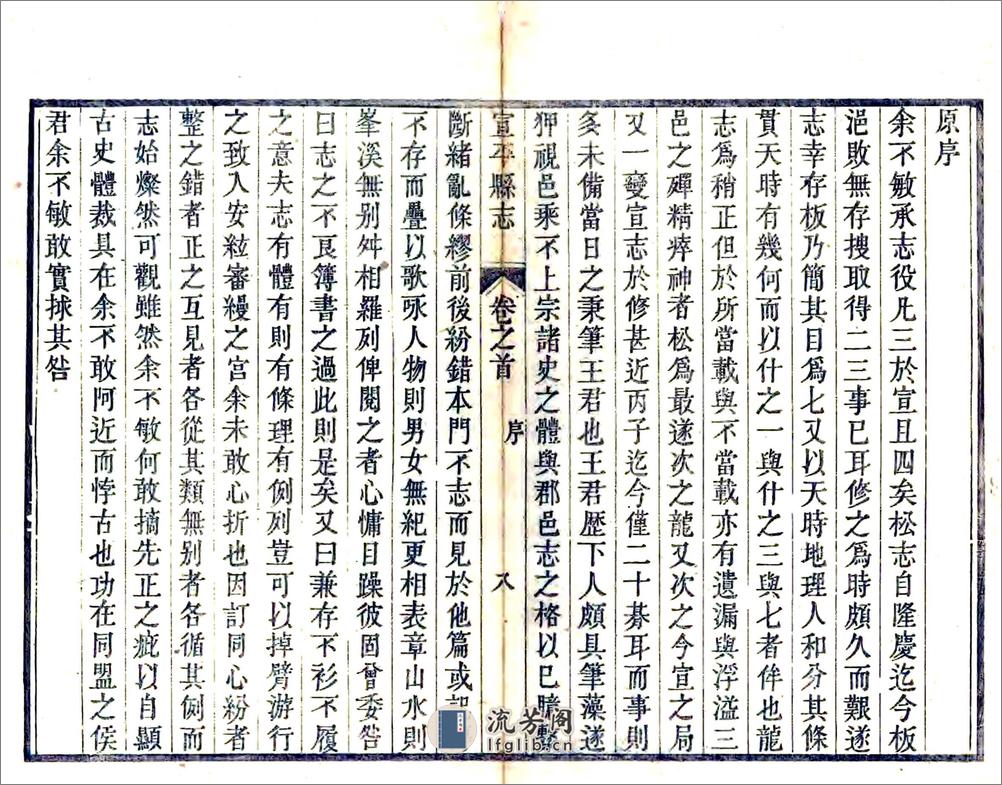 原序
余不敏承志役凡三於宣且四矣松志自隆慶迄今板
浥敗無存搜取得二三事已耳修之爲時頗久而艱遂
志幸存板乃簡其目爲七又以天時地理人和分其條
貫天時有幾何而以什之一與什之三與七者侔也龍
志爲稍正但於所當載與不當載亦有遺漏與浮溢三
邑之殫精瘁神者松爲最遂次之龍又次之今宣之局
又一變宣志於修甚近丙子迄今僅二十朞耳而事則
多未備當日之秉筆王君也王君歷下人頗具筆藻遂
狎視邑乘不上宗諸史之體與郡邑志之格以巳
宣平縣志 卷之首 序 八
斷緒亂條繆前後紛錯本門不志而見於他篇或
不存而疊以歌咏人物則男女無紀更相表章山水則
峯溪無别舛相羅列俾閱之者心慵目躁彼固曾委咎
曰志之不良簿書之過此則是矣又曰兼存不衫不履
之意夫志有體有則有條理有例列豈可以掉臂游行
之致入安絃審縵之宮余未敢心折也因訂同心紛者
整之錯者正之互見者各從其類無别者各循其例而
志始燦然可觀雖然余不敏何敢摘先正之疵以自顯
古史體裁具在余不敢阿近而悖古也功在同盟之侯
君余不敏敢實捄其咎
流芳阁
lfglib.cn